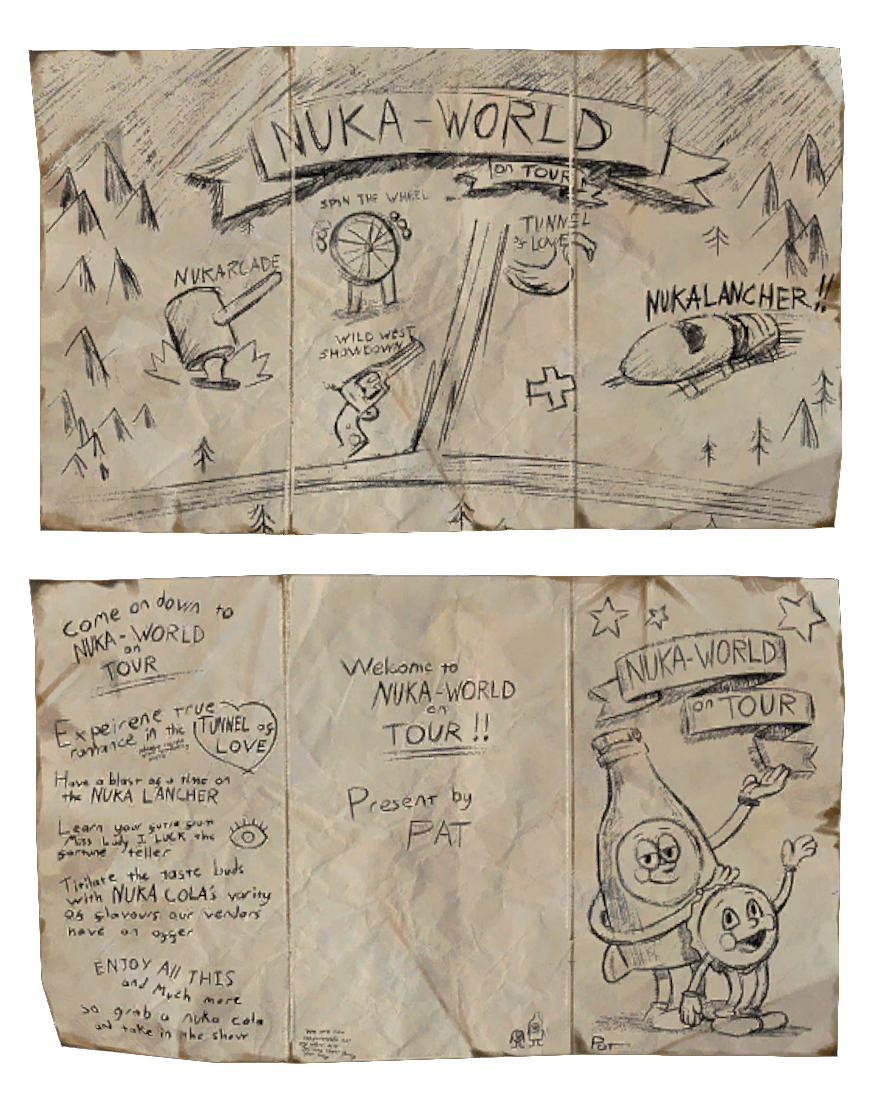 NUKA-WORLD
on TOUR
SPIN THE WHEEL
TUNNEL
of LOVE
NUKARCADE
NUKALANCHER!!
WILD WEST
SHOWDOWN
Come on down to
NUKA-WORLD
on
TOUR
Expeirene true
romance in the
TUNNEL of
LOVE
Have a blast of a time on
the NUKA LANCHER
Learn your
Miss Lady I LUCK the
fortune teller
Titilate the taste buds
with NUKA COLA's varity
of flavours our vendors
have on offer
ENJOY All THIS
and Much more
so grab a nuka cola
and take in the show
Welcome to
NUKA-WORLD
on
TOUR!!
Present by
PAT
We are not
NUKA-WORLD
on TOUR
PAT